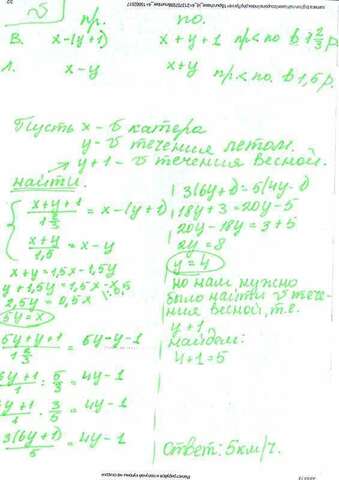 v пр. по.
В. x-(y+1) x+y+1 пр < по в 1 2/3 р.
Л. x-y x+y пр < по. в 1,5 р.
Пусть x - v катера
y - v течения летом.
y+1 - v течения весной.
найти.
(x+y+1)/(1 2/3) = x-(y+1)
(x+y)/1,5 = x-y
x+y=1,5x-1,5y
y+1,5y=1,5x-x
2,5y=0,5x |:0,5
5y=x
(5y+y+1)/(1 2/3) = 5y-y-1
(6y+1)/1 : 5/3 = 4y-1
(6y+1)/1 · 3/5 = 4y-1
3(6y+1)/5 = 4y-1
3(6y+1)=5(4y-1)
18y+3=20y-5
20y-18y=3+5
2y=8
y=4
но нам нужно
было найти v тече-
ния весной, т.е.
y+1
найдем:
4+1=5
Ответ: 5км/ч.